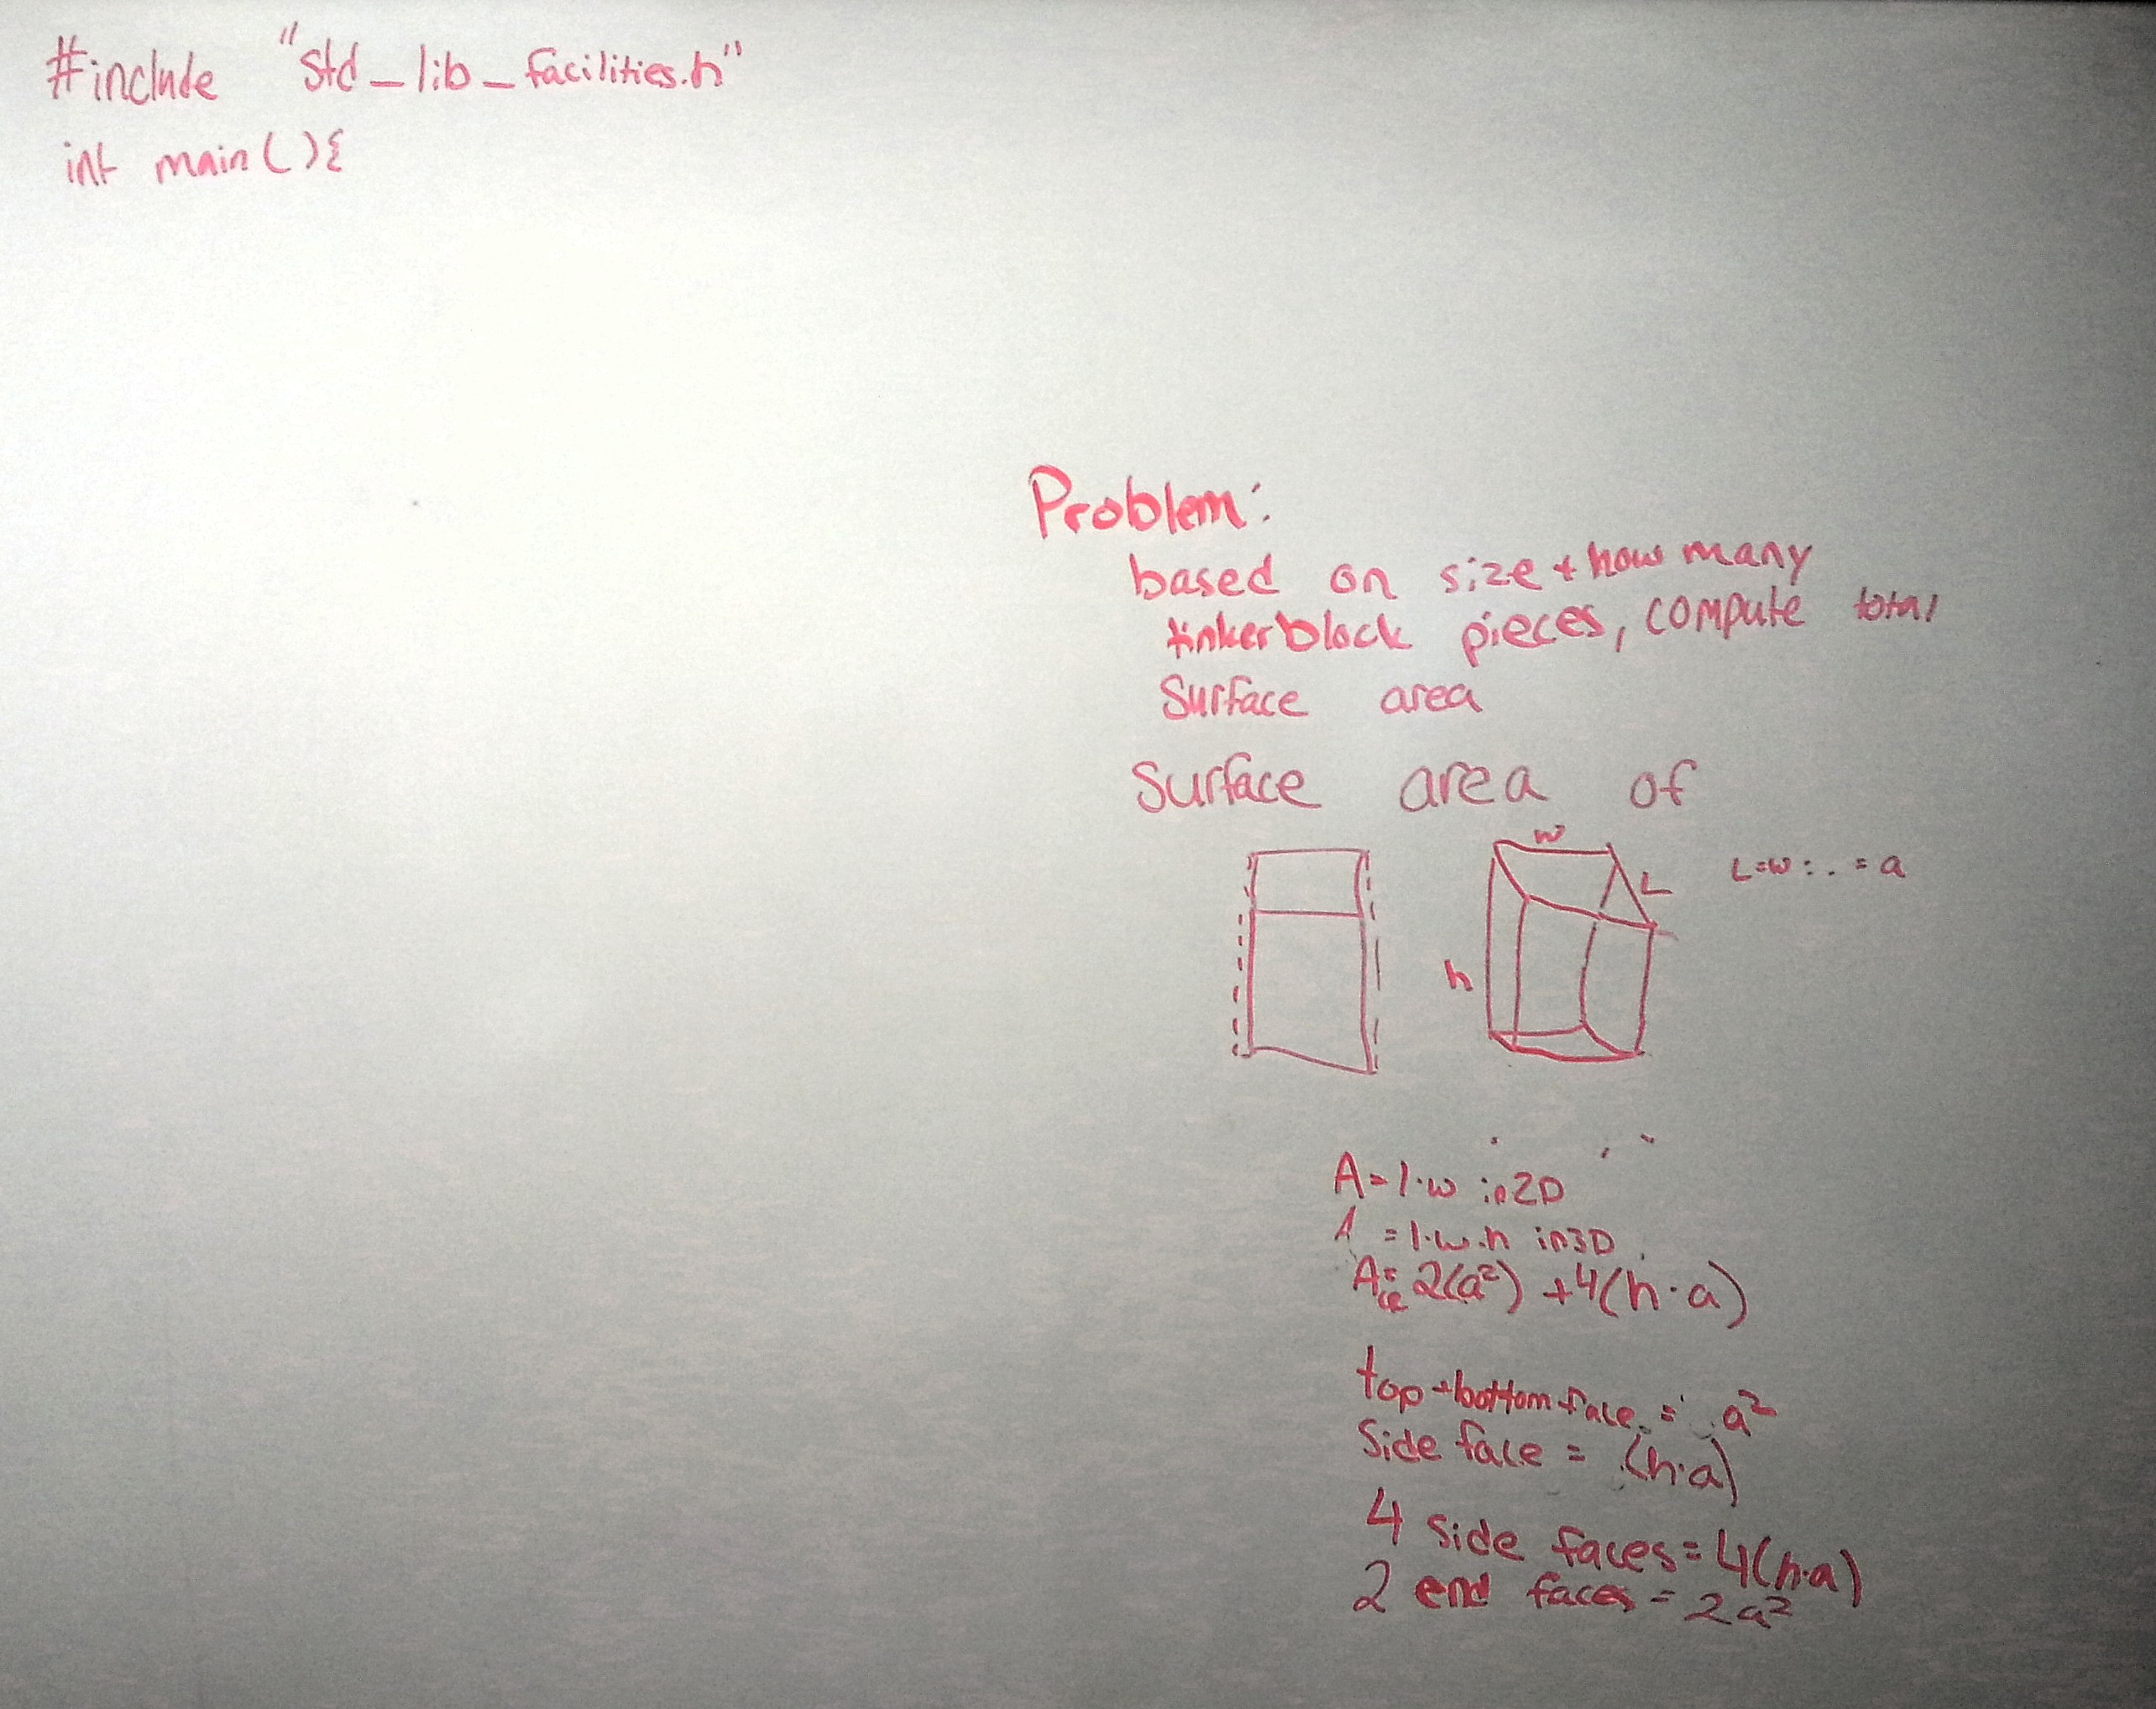 #include "std_lib_facilities.h"
int main(){
Problem:
based on size + how many
tinkerblock pieces, compute total
Surface area
Surface area of
w
L
L=w ∴ = a
h
A=l·w in2D
A =l·w·h in3D
A= 2(a²) +4(h·a)
top+bottom face = a²
Side face = (h·a)
4 Side faces=4(h·a)
2 end faces=2a²